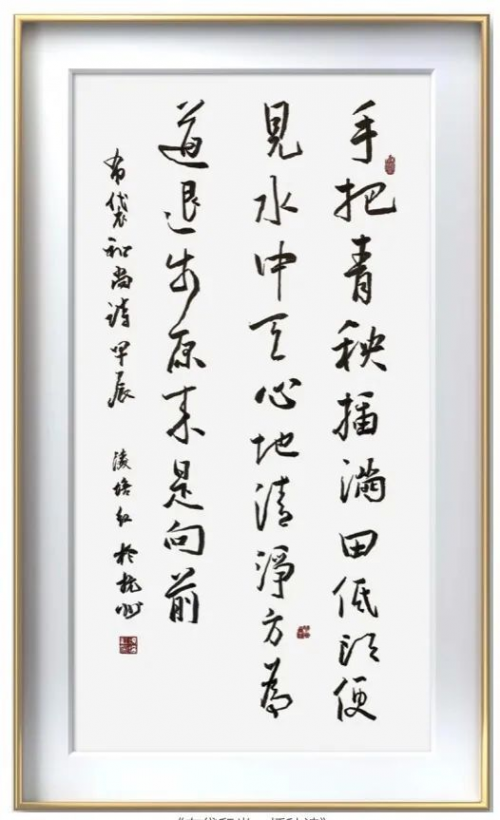 手把青秧插滿田低頭便
見水中天心地清淨方為
道退步原来是向前
布袋和尚詩 甲辰 凌培红於杭州